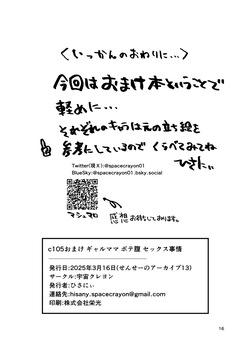 〈いっかんのおわりに…〉
今回はおまけ本ということで
軽めに…
それぞれのキャラは元の立ち絵を
参考にしているので くらべてみてね
ひさにぃ
Twitter(現X):@spacecrayon01
BlueSky:@spacecrayon01.bsky.social
マシュマロ
感想お待ちしております。
c105おまけ ギャルママ ボテ腹 セックス事情
発行日:2025年3月16日(せんせーのアーカイブ13)
サークル:宇宙クレヨン
発行者:ひさにぃ
連絡先:hisany.spacecrayon@gmail.com
印刷:株式会社栄光
16